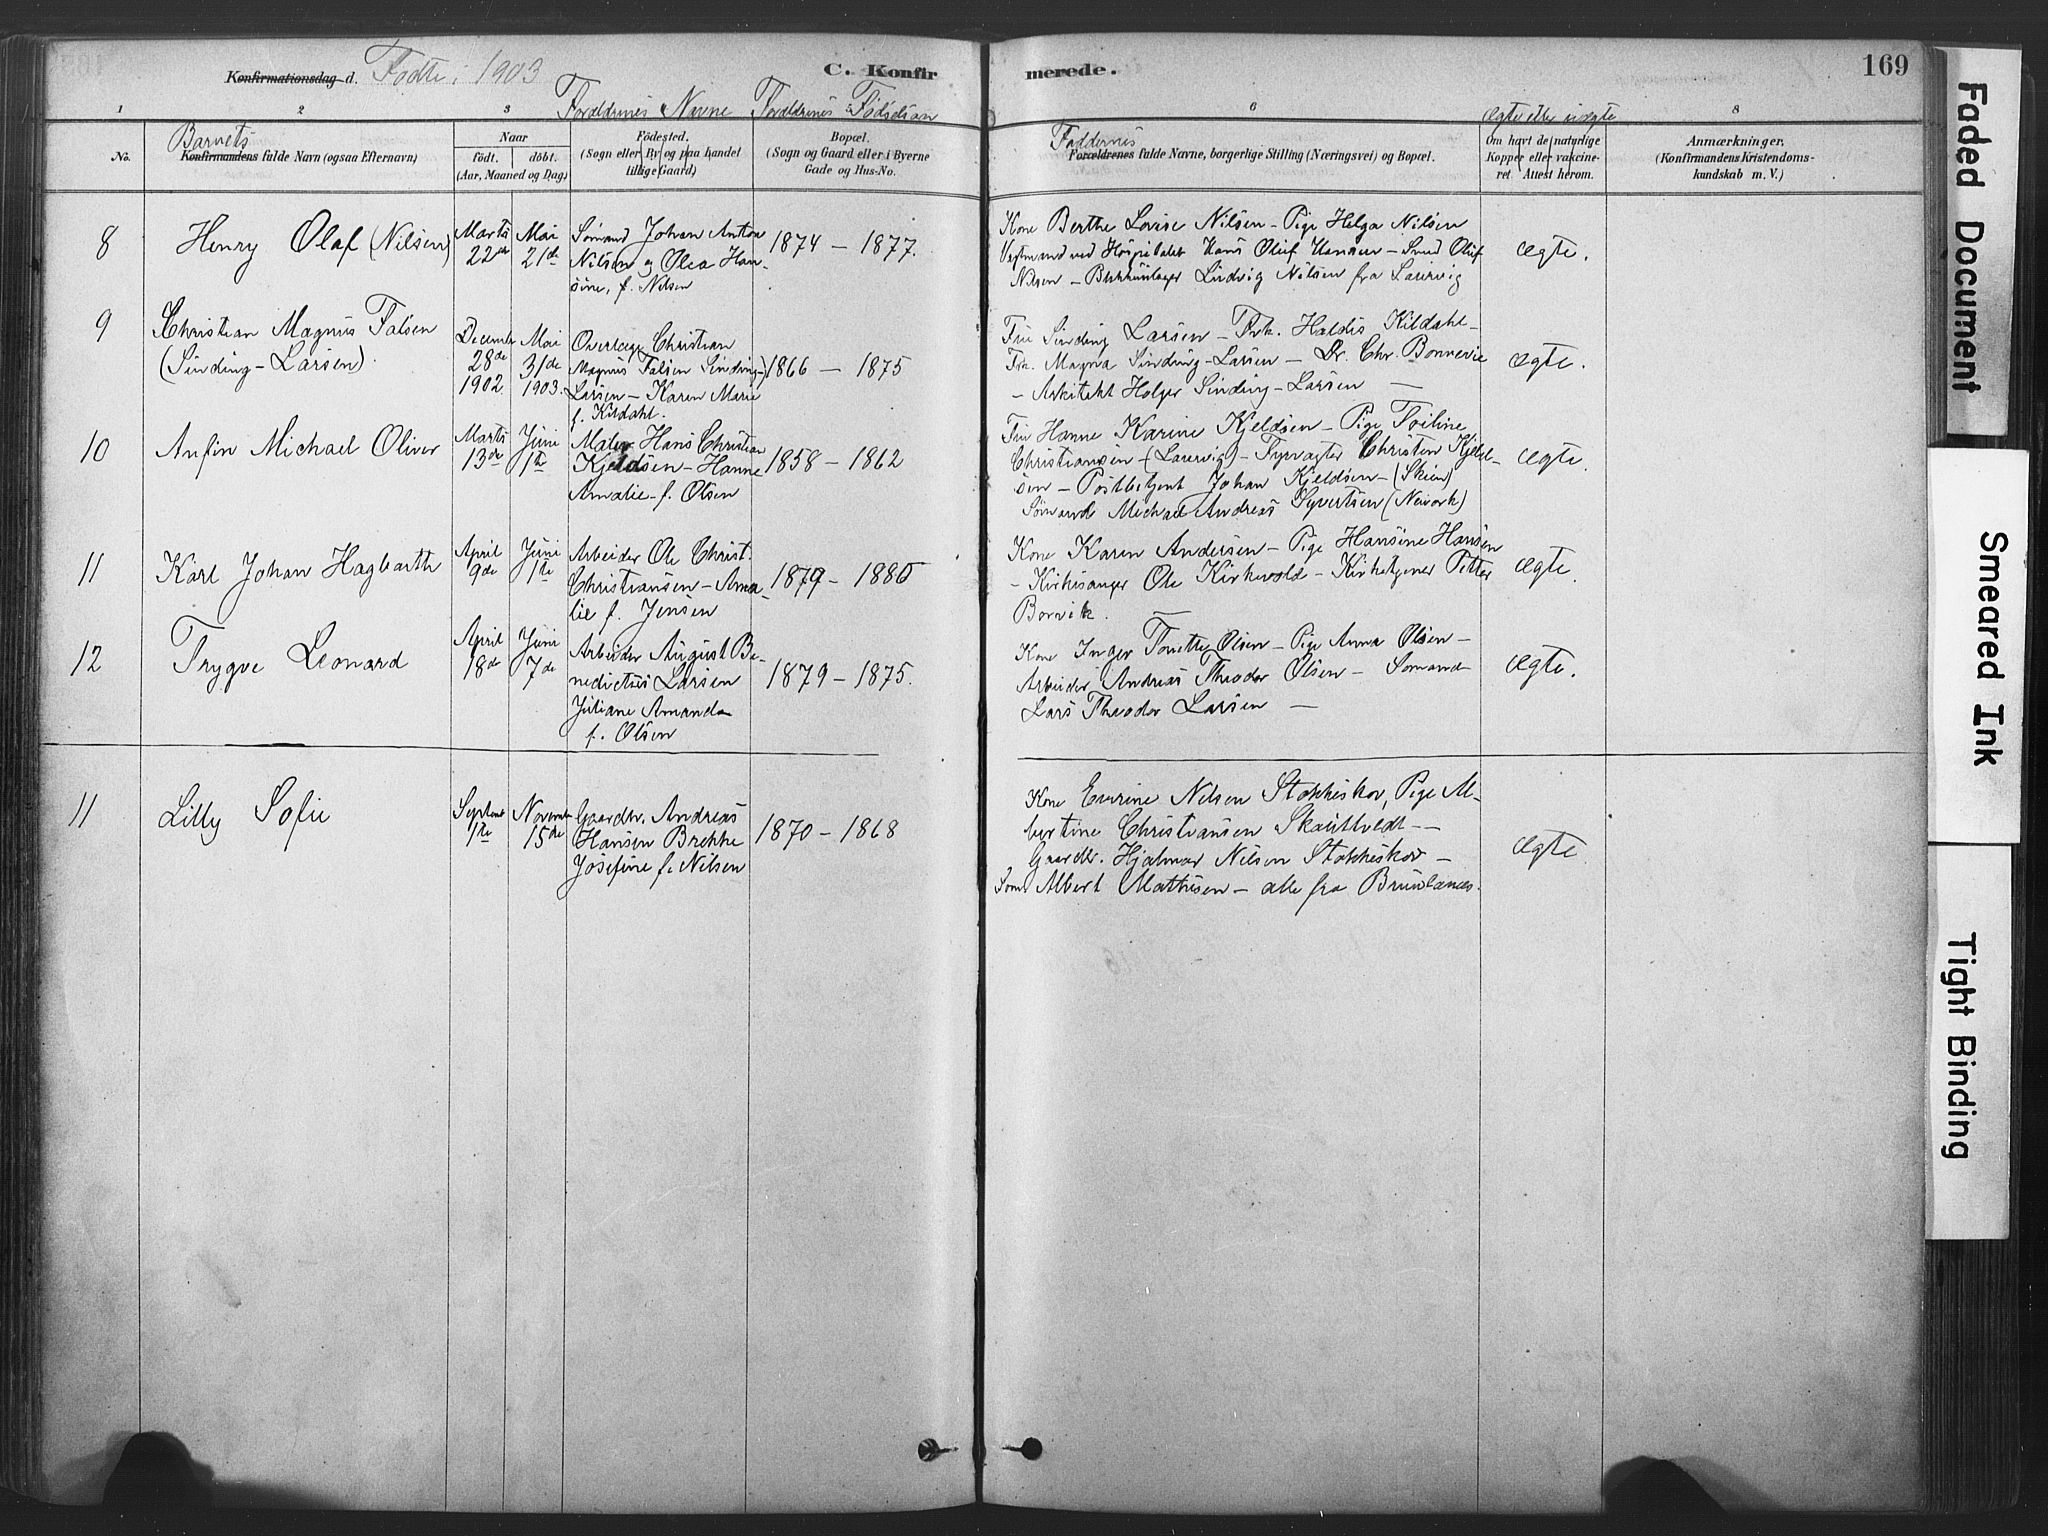 Konfirmationsdag d. Fødte i 1903
C. Konfirmerede.
169
1 2 3 6 8
Forældrenes Navne Forældrenes Fødselsaar
Ægte eller uægte
No.
Barnets
Konfirmandens fulde Navn (ogsaa Efternavn)
Naar
födt. döbt.
(Aar, Maaned og Dag)
Födested.
(Sogn eller By og paa Landet
tillige Gaard)
Bopæl.
(Sogn og Gaard eller i Byerne
Gade og Hus-No.
Faddernes
Forældrenes fulde Navne, borgerlige Stilling (Næringsvei) og Bopæl.
Om havt de naturlige
Kopper eller vaccine-
ret Attest herom.
Anmærkninger.
(Konfirmandens Kristendoms-
kundskab m. V.)
8
Henry Olaf (Nilsen)
Marts
22de
Mai
21de
Sømand Johan Anton
Nilsen og Olea Han-
sine, f. Nilsen
1874 – 1877.
Kone Berthe Lovise Nilsen – Pige Helga Nilsen
Vagtmand ved Hospitalet Hans Oluf Hansen – Smed Oluf
Nilsen – Ludvig Nilsen fra Laurvig
ægte.
9
Christian Magnus Falsen
(Sinding-Larsen).
December
28de
1902.
Mai
31de
1903.
Overlæge Christian
Magnus Falsen Sinding-
Larsen – Karen Marie
f. Kildahl.
1866 – 1875
Fru Sinding Larsen – Frk. Haldis Kildahl –
Frk. Magna Sinding-Larsen – Dr. Chr. Bonnevie
– Arkitekt Holger Sinding-Larsen –
ægte.
10
Anfin Michael Oliver
Marts
13de
Juni
1ste
Maler Hans Christian
Kjeldsen – Hanne
Amalie f. Olsen
1858 – 1862
Fru Hanne Karine Kjeldsen – Pige
Christiansen (Laurvig) – Fyrvagter Christen Kjeld-
sen – Postbetjent Johan Kjeldsen – (Skien)
Sømand Michael Andreas Syvertsen (Nework)
ægte.
11
Karl Johan Hagbarth
April
9de
Juni
1ste
Arbeider Ole Christ.
Christiansen – Ama-
lie f. Jensen
1879 – 1880
Kone Karen Andersen – Pige Hansine Hansen
– Kirkesanger Ole Kirkevold – Kirketjener Petter
Borvik.
ægte.
12
Trygve Leonard
April
18de
Juni
7de
Arbeider August Be-
nedictus Larsen
Juliane Amanda
f. Olsen
1879 – 1875.
Kone Inger Tonette Olsen – Pige Anna Olsen –
Arbeider Andreas Theodor Olsen – Sømand
Lars Theodor Larsen –
ægte.
11
Lilly Sofie
Septemb
1ste
Novemb
15de
Gaardbr. Andreas
Hansen Brekke
Josefine f. Nilsen
1870 – 1868
Kone Evrine Nilsen Stokkeskov, Pige Al-
bertine Christiansen –
Gaardbr. Hjalmar Nilsen Stokkeskov –
Søm. Albert Mathisen – alle fra Brunlanæs.
ægte.
Faded Document
Smeared Ink
Tight Binding